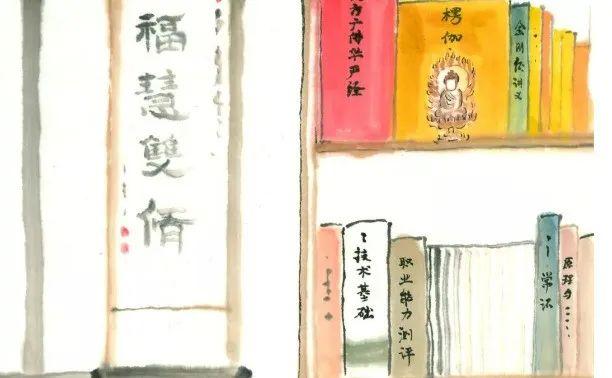 福慧雙脩
方广佛华严经
楞伽
金刚经讲义
技术基础
职业能力测评
常识
原理与